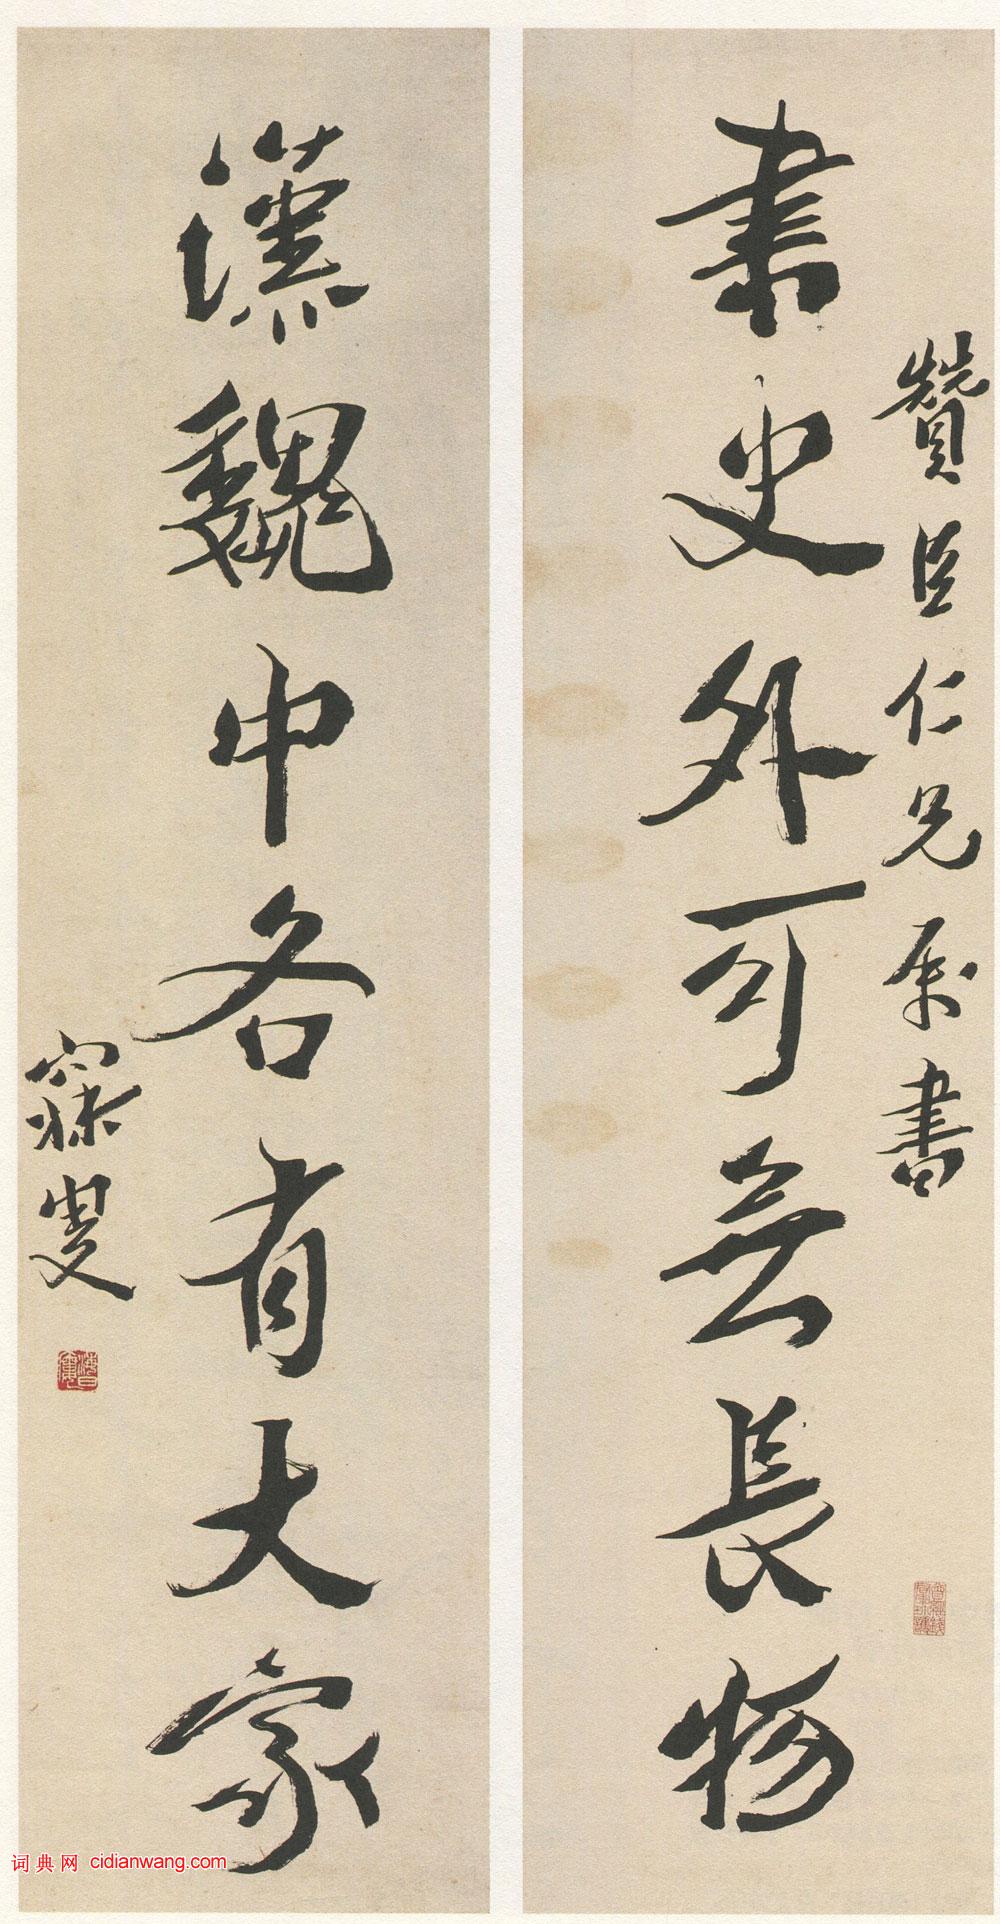 贊臣仁兄屬書
書史外可無長物
漢魏中各有大家
寐叟
词典网 cidianwang.com